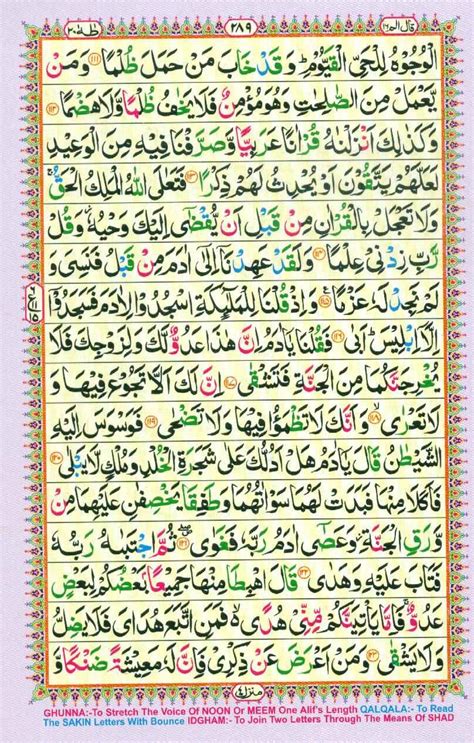 قال الم ١٦
٢٨٩
طٰهٰ ٢٠
الْوُجُوْهُ لِلْحَیِّ الْقَیُّوْمِ ؕ وَ قَدْ خَابَ مَنْ حَمَلَ ظُلْمًا ﴿۱۱۱﴾ وَ مَنْ
یَّعْمَلْ مِنَ الصّٰلِحٰتِ وَ هُوَ مُؤْمِنٌ فَلَا یَخٰفُ ظُلْمًا وَّ لَا هَضْمًا ﴿۱۱۲﴾
وَ كَذٰلِكَ اَنْزَلْنٰهُ قُرْاٰنًا عَرَبِیًّا وَّ صَرَّفْنَا فِیْهِ مِنَ الْوَعِیْدِ
لَعَلَّهُمْ یَتَّقُوْنَ اَوْ یُحْدِثُ لَهُمْ ذِكْرًا ﴿۱۱۳﴾ فَتَعٰلَی اللّٰهُ الْمَلِكُ الْحَقُّ ۚ
وَ لَا تَعْجَلْ بِالْقُرْاٰنِ مِنْ قَبْلِ اَنْ یُّقْضٰۤی اِلَیْكَ وَحْیُهٗ ؗ وَ قُلْ
رَّبِّ زِدْنِیْ عِلْمًا ﴿۱۱۴﴾ وَ لَقَدْ عَهِدْنَاۤ اِلٰۤی اٰدَمَ مِنْ قَبْلُ فَنَسِیَ وَ
لَمْ نَجِدْ لَهٗ عَزْمًا ﴿۱۱۵﴾ وَ اِذْ قُلْنَا لِلْمَلٰٓىِٕكَةِ اسْجُدُوْا لِاٰدَمَ فَسَجَدُوْۤا
اِلَّاۤ اِبْلِیْسَ ؕ اَبٰی ﴿۱۱۶﴾ فَقُلْنَا یٰۤاٰدَمُ اِنَّ هٰذَا عَدُوٌّ لَّكَ وَ لِزَوْجِكَ فَلَا
یُخْرِجَنَّكُمَا مِنَ الْجَنَّةِ فَتَشْقٰی ﴿۱۱۷﴾ اِنَّ لَكَ اَلَّا تَجُوْعَ فِیْهَا وَ
لَا تَعْرٰی ﴿۱۱۸﴾ وَ اَنَّكَ لَا تَظْمَؤُا فِیْهَا وَ لَا تَضْحٰی ﴿۱۱۹﴾ فَوَسْوَسَ اِلَیْهِ
الشَّیْطٰنُ قَالَ یٰۤاٰدَمُ هَلْ اَدُلُّكَ عَلٰی شَجَرَةِ الْخُلْدِ وَ مُلْكٍ لَّا یَبْلٰی ﴿۱۲۰﴾
فَاَكَلَا مِنْهَا فَبَدَتْ لَهُمَا سَوْاٰتُهُمَا وَ طَفِقَا یَخْصِفٰنِ عَلَیْهِمَا مِنْ
وَّرَقِ الْجَنَّةِ ؗ وَ عَصٰۤی اٰدَمُ رَبَّهٗ فَغَوٰی ﴿۱۲۱﴾ ثُمَّ اجْتَبٰىهُ رَبُّهٗ
فَتَابَ عَلَیْهِ وَ هَدٰی ﴿۱۲۲﴾ قَالَ اهْبِطَا مِنْهَا جَمِیْعًۢا بَعْضُكُمْ لِبَعْضٍ
عَدُوٌّ ۚ فَاِمَّا یَاْتِیَنَّكُمْ مِّنِّیْ هُدًی ۙ۬ فَمَنِ اتَّبَعَ هُدَایَ فَلَا یَضِلُّ
وَ لَا یَشْقٰی ﴿۱۲۳﴾ وَ مَنْ اَعْرَضَ عَنْ ذِكْرِیْ فَاِنَّ لَهٗ مَعِیْشَةً ضَنْكًا وَّ
منزل ٤
GHUNNA:-To Stretch The Voice Of NOON Or MEEM One Alif's Length QALQALA:- To Read
The SAKIN Letters With Bounce IDGHAM:- To Join Two Letters Through The Means Of SHAD